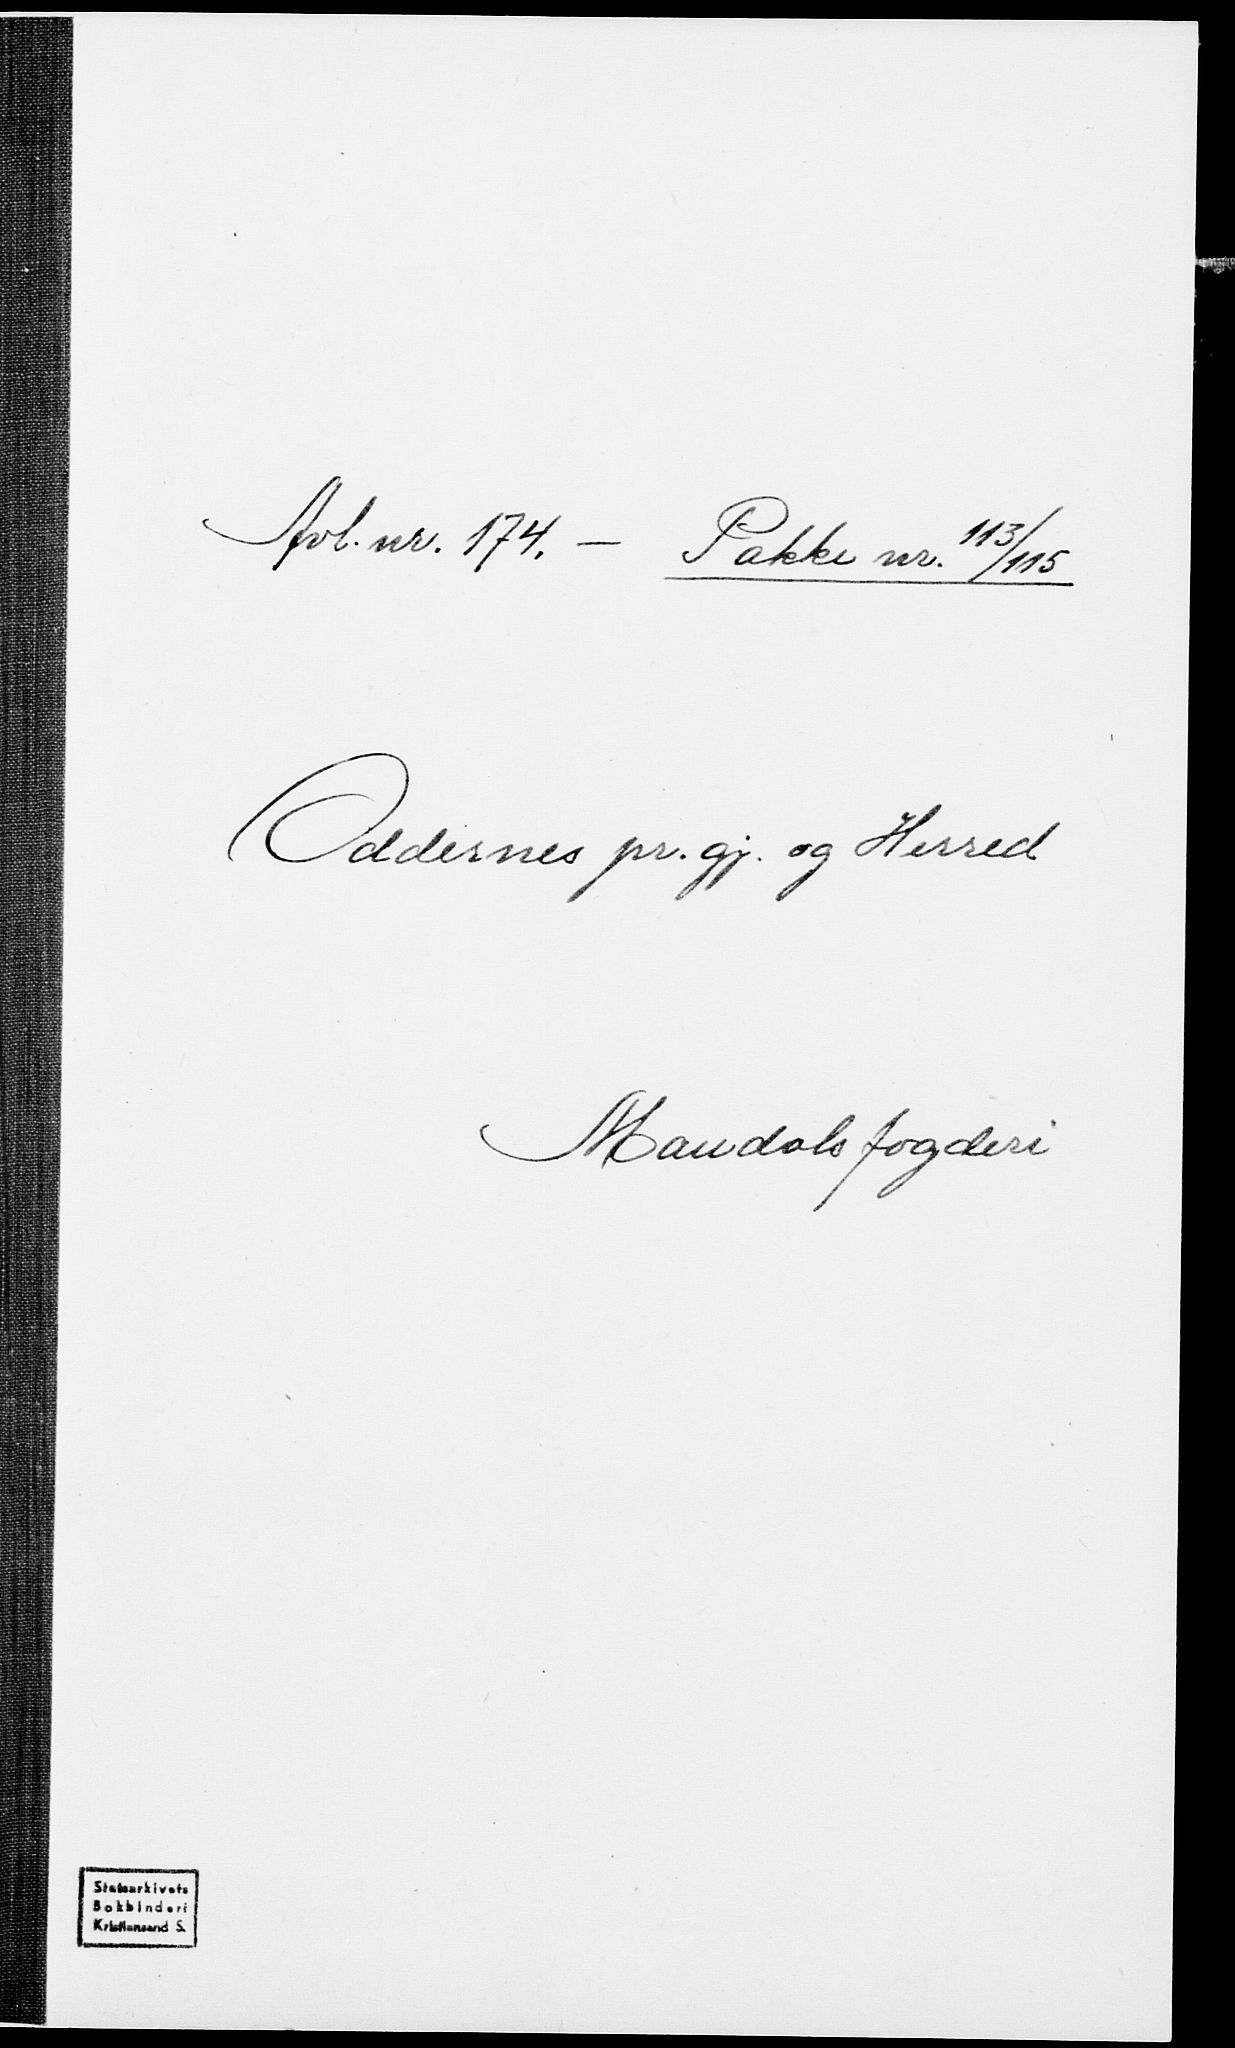 Avl. nr. 174. — Pakke nr. 113/115
Oddernes pr. gj. og Herred
Mandals fogderi
Statsarkivets
Bokbinderi
Kristiansand S.